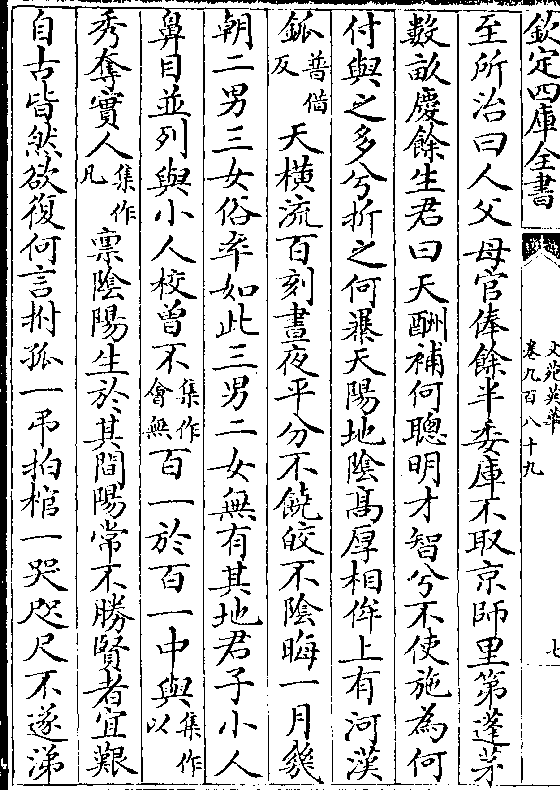 欽定四庫全書
文苑英華
卷九百八十九
七
至所治曰人父母官俸餘半委庫不取京師里第蓬茅
數畝慶餘生君曰天酬補何聰明才智兮不使施為何
付與之多兮折之何瀑天陽地陰髙厚相侔上有河漢
鈲普借反天橫流百刻晝夜平分不饒皎不陰晦一月幾
朝二男三女俗率如此三男二女無有其地君子小人
鼻目並列與小人校曾不集作會無百一於百一中與集作以
秀奪實人集作凡禀陰陽生於其間陽常不勝賢者宜艱
自古皆然欲復何言拊孤一弔拍棺一哭咫尺不遂涕